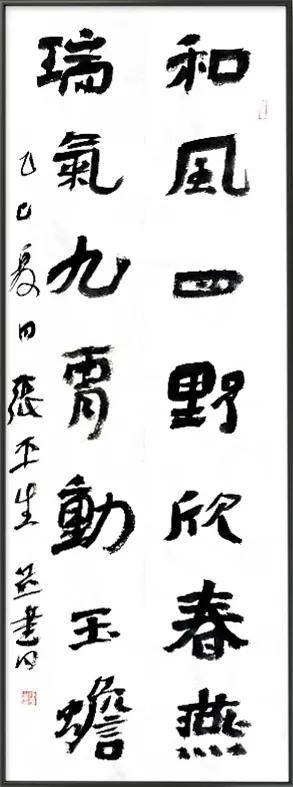 和風四野欣春燕
瑞氣九霄動玉蟾
乙巳夏日張玉生并書